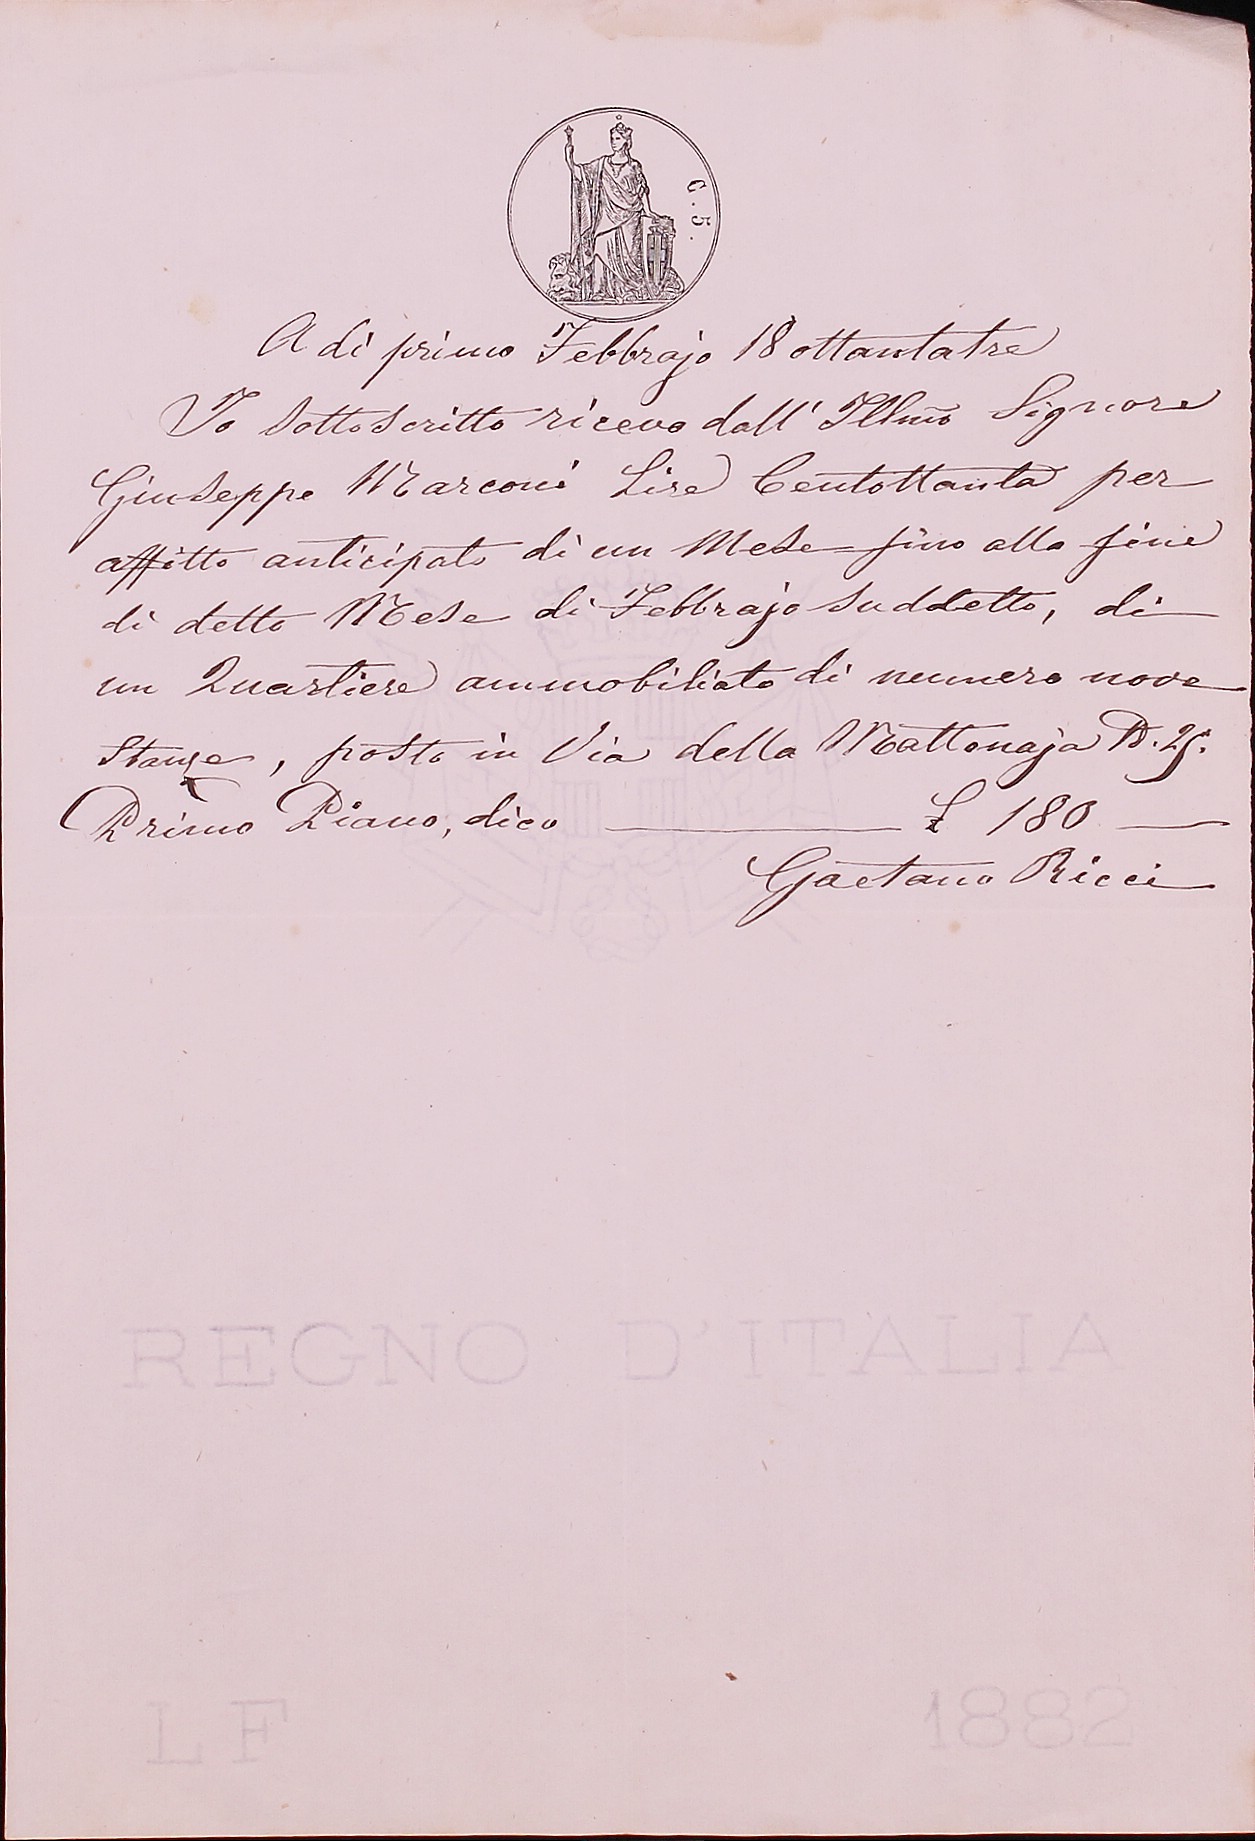 C. 5.
A di primo Febbrajo 18 ottantatre
Io Sottoscritto ricevo dall' Illmo Signore
Giuseppe Marconi Lire Centottanta per
affitto anticipato di un Mese fino alla fine
di detto Mese di Febbrajo suddetto, di
un Quartiere ammobiliato di nummero nove
Stanze, posto in Via della Mattonaja
Primo Piano, dico £ 180
Gaetano Ricci
REGNO D'ITALIA
LF 1882